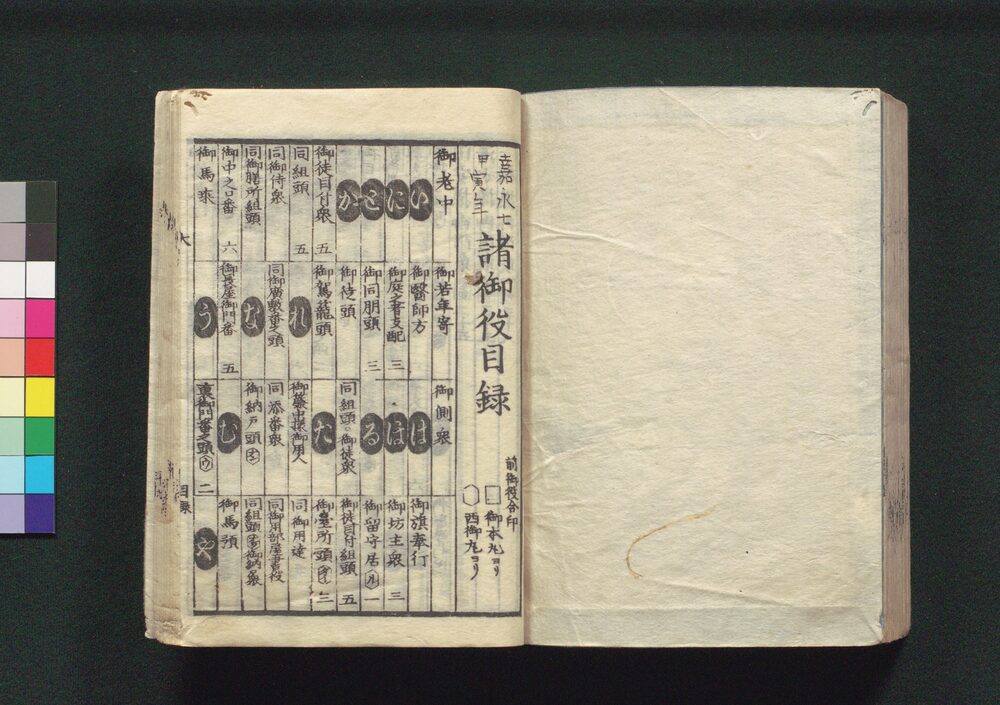 嘉永七
甲寅年
諸御役目録
前御役合印
御本丸ヨリ
西御丸ヨリ
御老中
い
に
と
か
御徒目付衆 五
同組頭 五
同御侍衆
同御膳所組頭
御中之口番 六
御馬乗
御若年寄
御醫師方
御庭之者支配 三
御同朋頭 三
御徒頭
御駕籠頭
れ
同御廣敷番之頭
な
御長屋御門番 五
う
御側衆
は
ほ
る
同組頭 御徒衆
た
御簾中様御用人
同添番衆
御納戸頭
む
裏御門番之頭 ウ 二
御旗奉行
御坊主衆 三
御留守居 ル 一
御徒目付組頭 五
御臺所頭 三
同御用達
同御用部屋書役
同組頭 御納衆
御馬預
や
大
目録